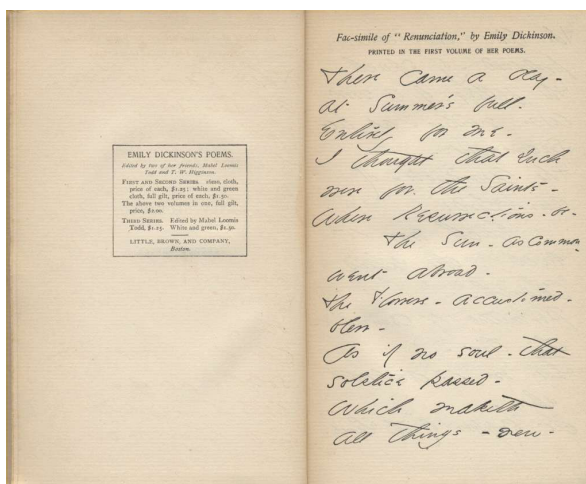 EMILY DICKINSON'S POEMS.
Edited by two of her friends, Mabel Loomis
Todd and T. W. Higginson.
FIRST AND SECOND SERIES. 16mo, cloth,
price of each, $1.25; white and green
cloth, full gilt, price of each, $1.50.
The above two volumes in one, full gilt,
price, $2.00.
THIRD SERIES. Edited by Mabel Loomis
Todd, $1.25. White and green, $1.50.
LITTLE, BROWN, AND COMPANY,
Boston.
Fac-simile of "Renunciation," by Emily Dickinson.
PRINTED IN THE FIRST VOLUME OF HER POEMS.
There came a day -
at Summer's full.
Entirely for me -
I thought that such
were for the Saints -
Where Resurrections - be -
The Sun - as common
went abroad -
The Flowers - accustomed -
blew -
As if no soul - that
solstice passed -
Which maketh
all things - new -